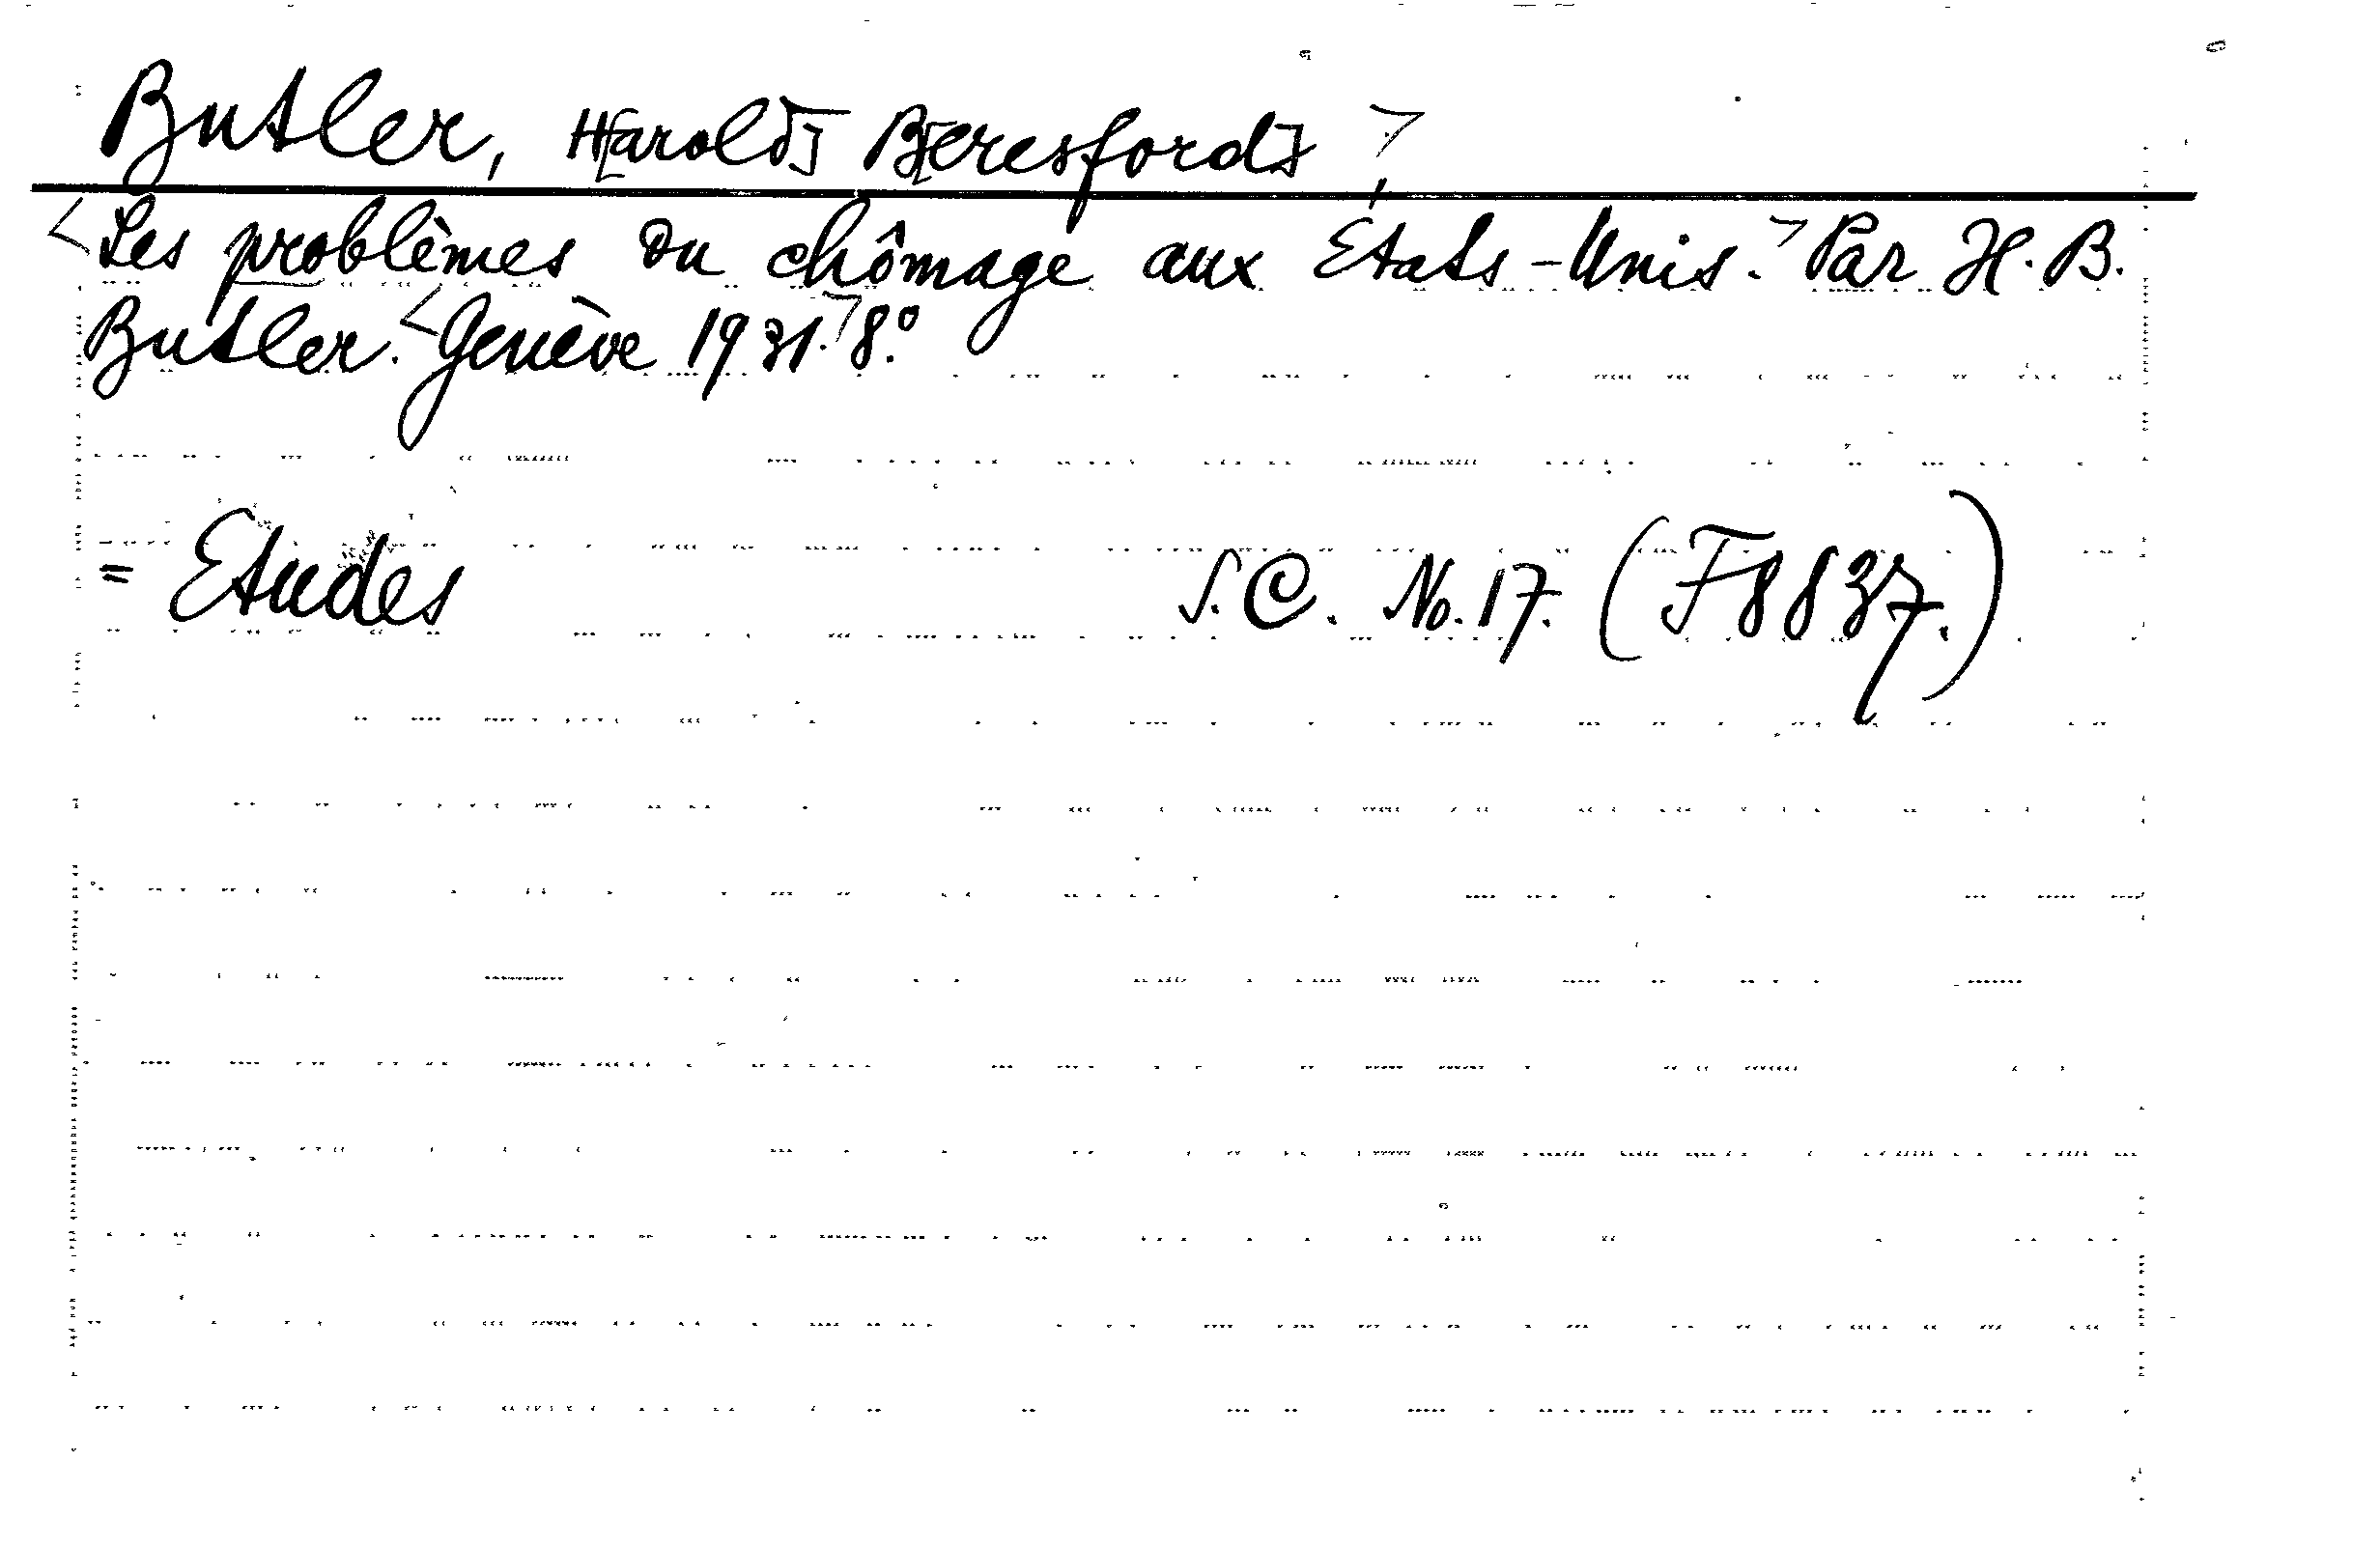 Butler, H[arold] B[eresford] >,
<Les problèmes du chômage aux Etats-Unis.> Par H. B.
Butler. <Genève 1931.> 8°.
= Etudes S. C. No. 17. (F8837.)